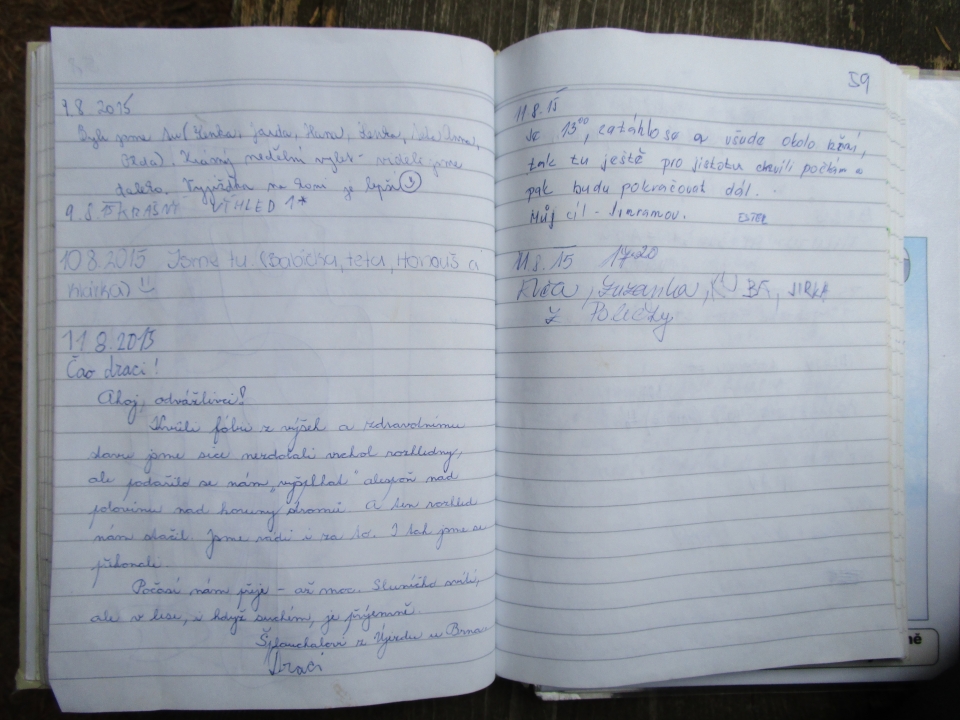 9.8. 2015
Byli jsme tu (Lenka, Jarda, Hana, Lenka,
Krásný nedělní výlet - viděli jsme
daleko. Vyjížďka na koni je lepší
9.8.15 KRÁSNÝ VÝHLED 1*
10.8.2015 Jsme tu (babička, teta, Honouš a
11.8.2015
Čao draci!
Ahoj, odvážlivci!
Kvůli fóbii z výšek a zdravotnímu
stavu jsme sice nezdolali vrchol rozhledny,
ale podařilo se nám "vyšplhat" alespoň nad
polovinu nad koruny stromů. A ten rozhled
nám stačil. Jsme rádi i za to. I tak jsme se
překonali.
Počasí nám přeje - až moc. Sluníčko svítí,
ale v lese, i když suchém, je příjemně.
z Újezdu u Brna
Draci
59
11.8.15
Je 13⁰⁰, zatáhlo se a všude okolo hřmí,
tak tu ještě pro jistotu chvíli počkám a
pak budu pokračovat dál.
Můj cíl - Jimramov. ESTER
11.8.15
, Zuzanka, JIRKA
z Poličky
ně